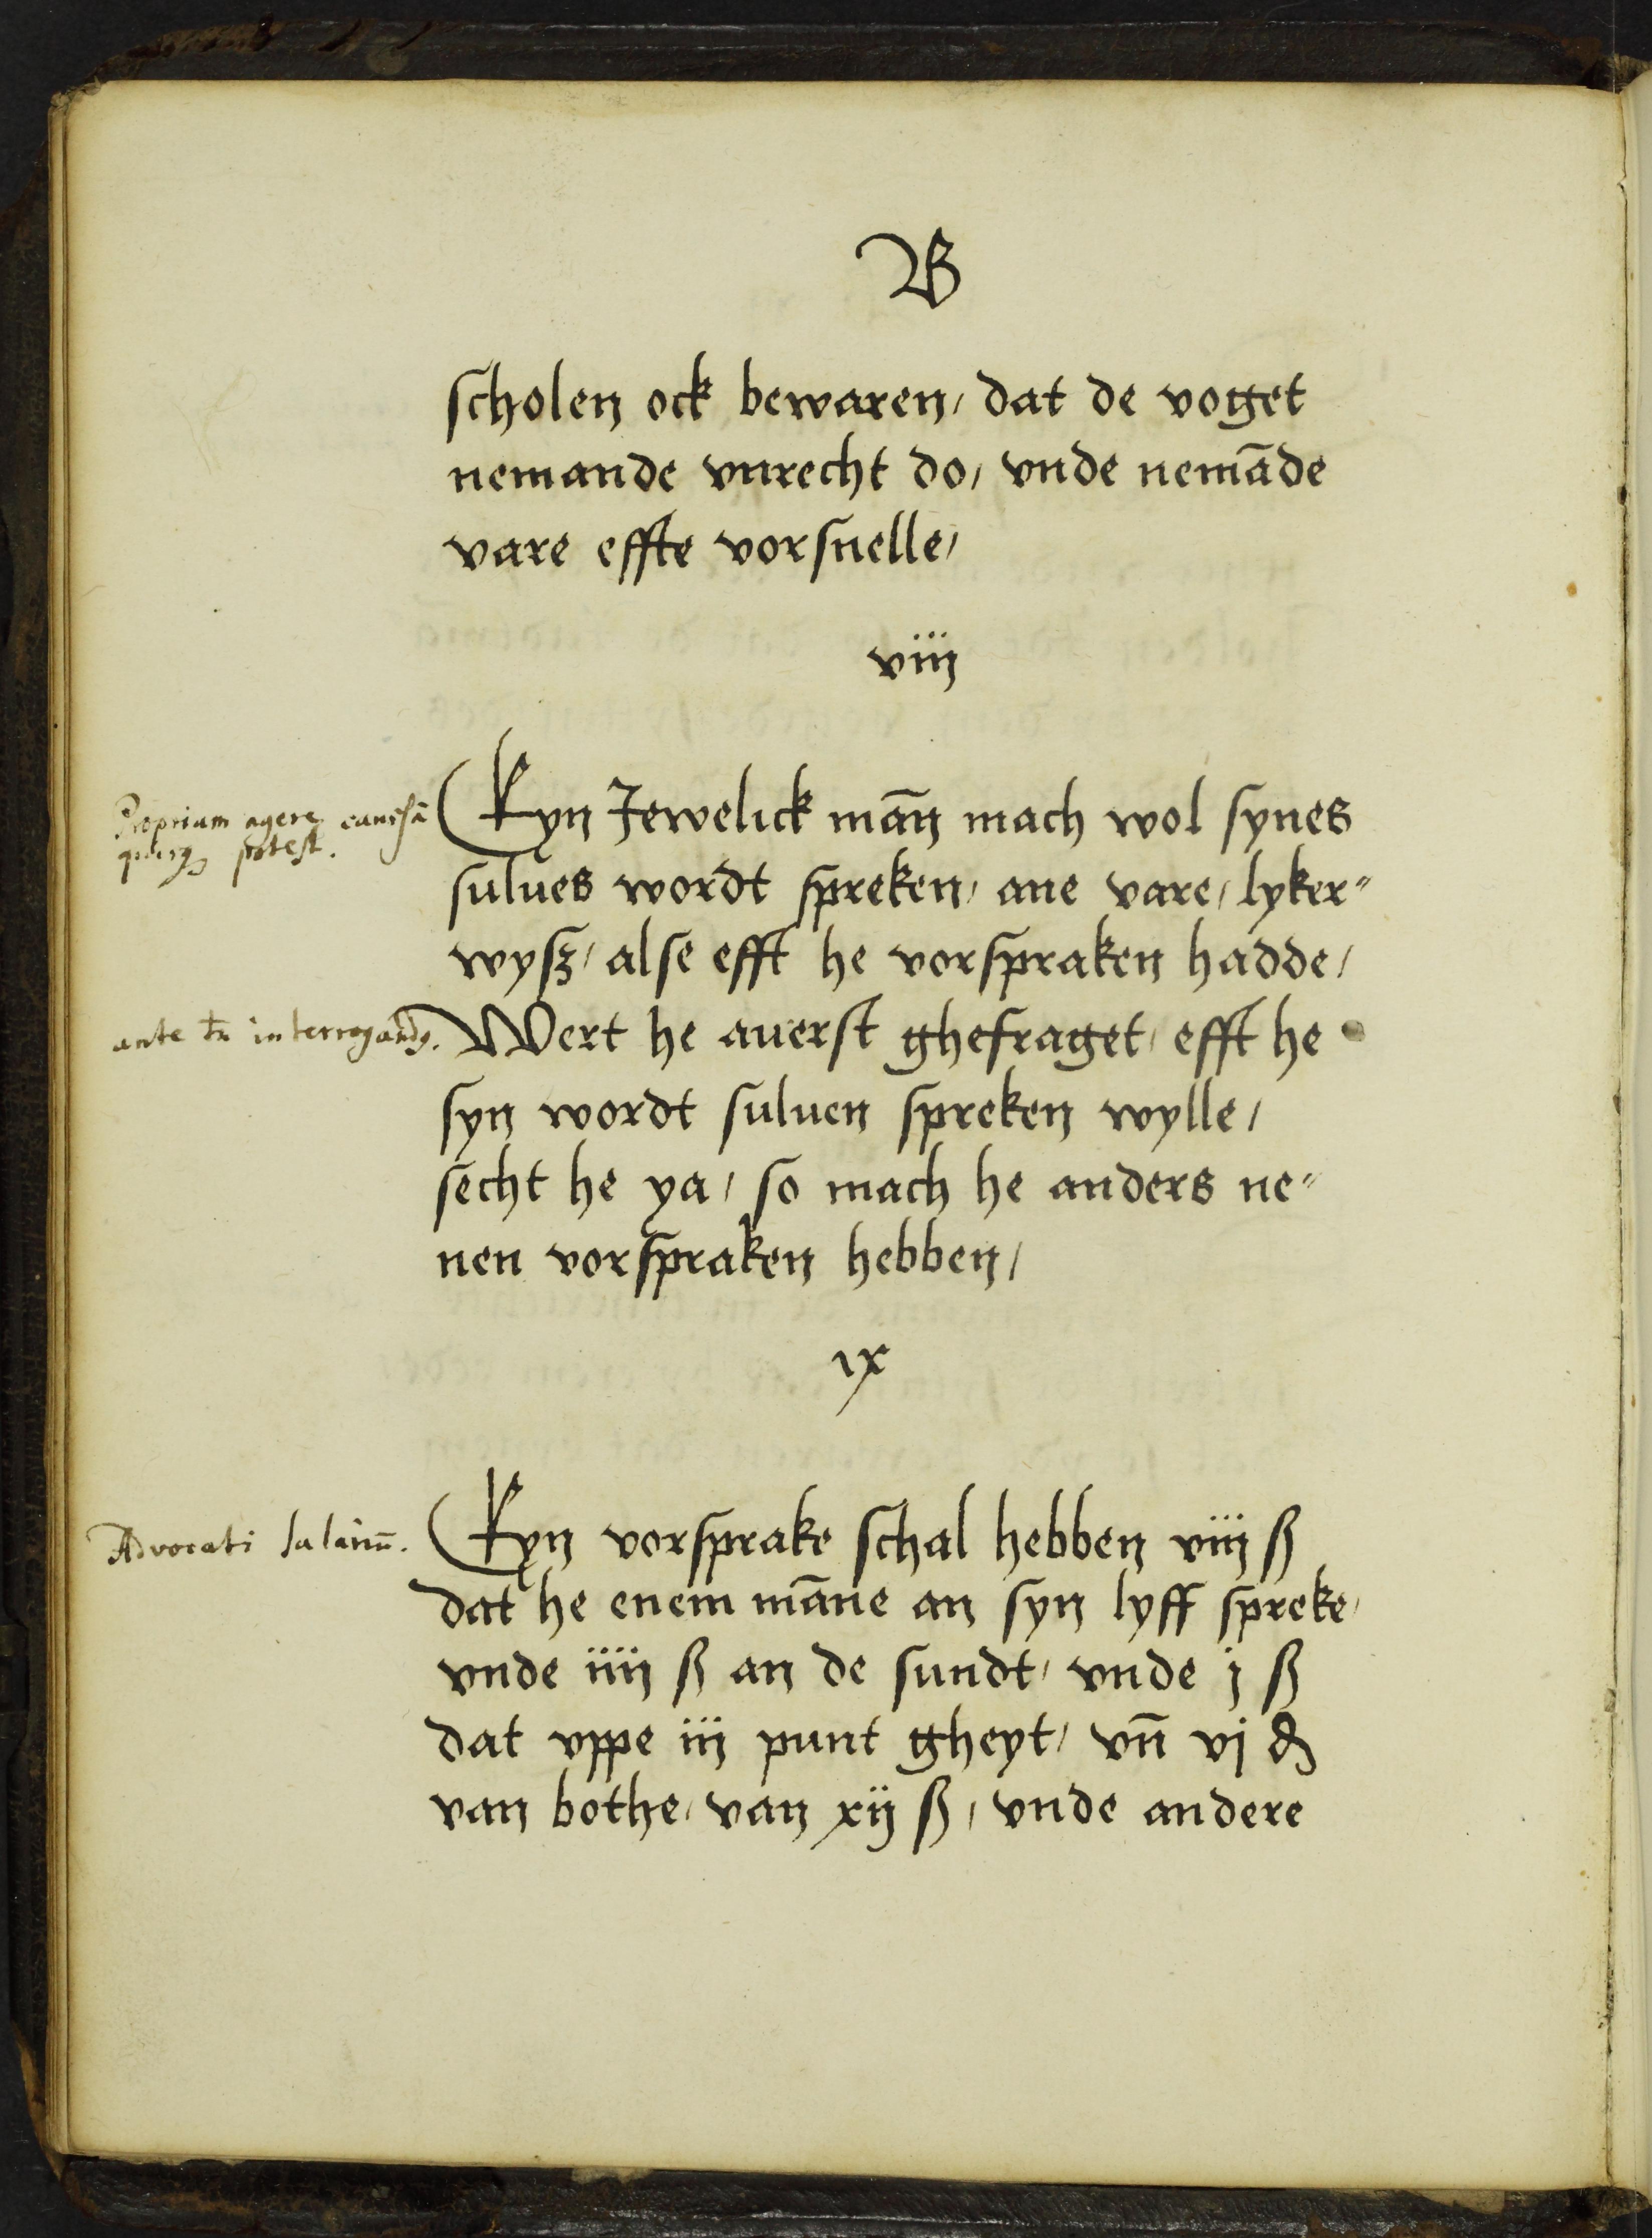 B
scholen ock bewaren, dat de voget
nemande vnrecht do, vnde nemāde
vare effte vorsnelle,
viij
Proprium agere caussā
quisq; potest.
Eyn Jewelick mān mach wol synes
sulues wordt spreken, ane vare, lyker=
wysz, alse efft he vorspraken hadde,
ante tn̄ interrogandq.
Wert he auerst ghefraget, efft he
syn wordt suluen spreken wylle,
secht he ya, so mach he anders ne=
nen vorspraken hebben,
ix
Advocati salariū.
Eyn vorsprake schal hebben viij ß
dat he enem māne an syn lyff spreke,
vnde iiij ß an de sundt, vnde j ß
dat vppe iij punt gheyt, vn̄ vj ₰
van bothe, van xij ß, vnde andere